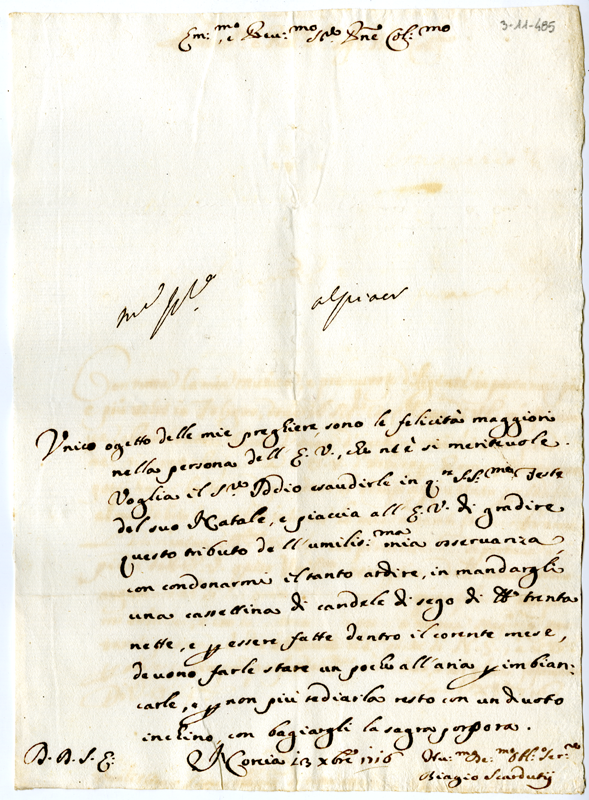 3-11-485
Em:mo, e Reu:mo Sre Pne Col:mo
Vnico ogetto delle mie preghiere, sono le felicità maggiori
nella persona dell E. V., che ne è si meriteuole.
Voglia il Sre Iddio esaudirle in q.te SS.me Feste
del suo Natale, e piaccia all E. V. di gradire
questo tributo dell umilis:ma mia osseruanza,
con condonarmi il tanto ardire, in mandargli
una cassettina di candele di sego di trenta
nette, e p essere fatte dentro il corente mese,
deuono farle stare un poco all aria p imbian:
carle, e p non piu tediarla resto con un diuoto
inchino, con bagiargli la sagra porpora.
D. V. S. E:
Norcia 13 xbre 1716
Hu:mo De:mo Obb:o Ser:re
Biagio Scardutij